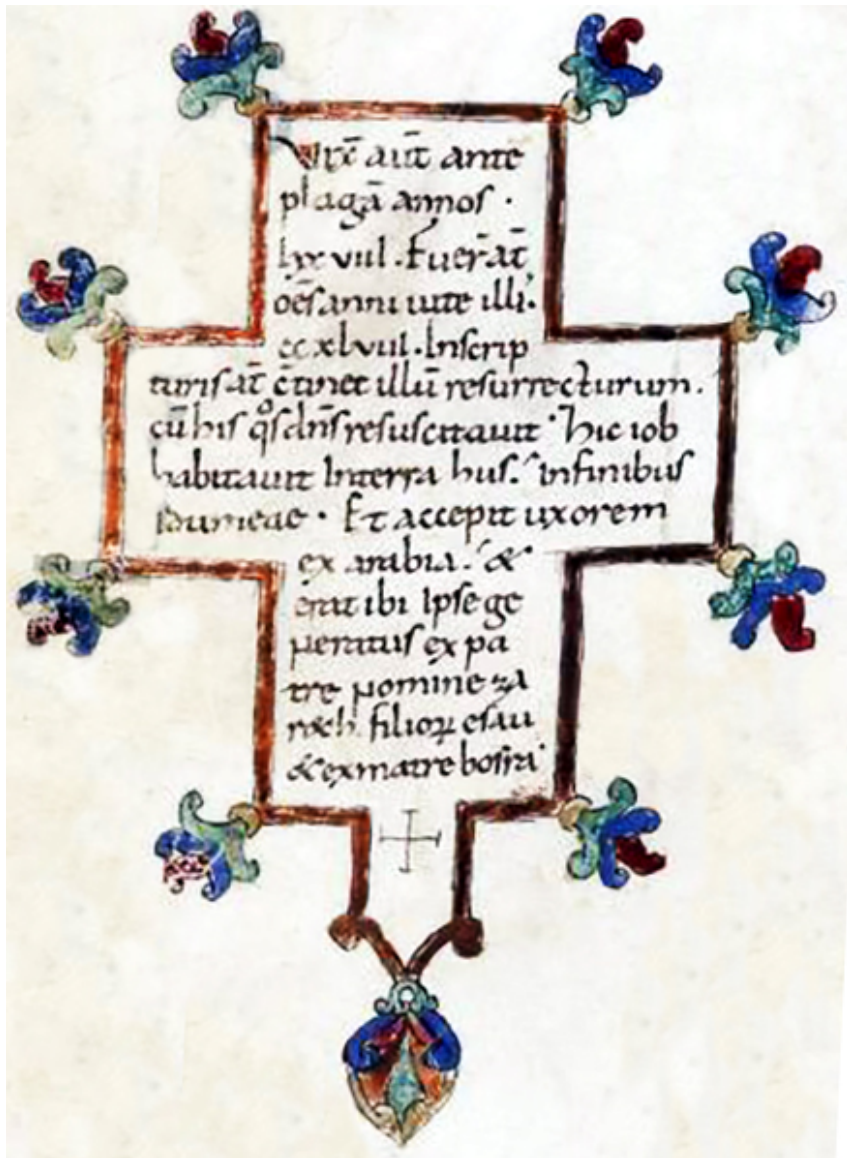 Vix̅ aut̅ ante
plaga̅ annos ·
lxx viiii . Fuer̅at̅
oe̅s anni uite illi·
cc xl viiii · Inscrip
turis at̅ c̅tinet illu̅ resurrecturum .
cu̅ his qͦs dn̅s resuscitauit · hic iob
habitauit Interra hus . infinibus
Idumeae · Et accepit uxorem
ex arabia . &
erat ibi Ipse ge
neratus ex pa
tre nomine za
reh . filioꝝ esau
& exmatre bosra